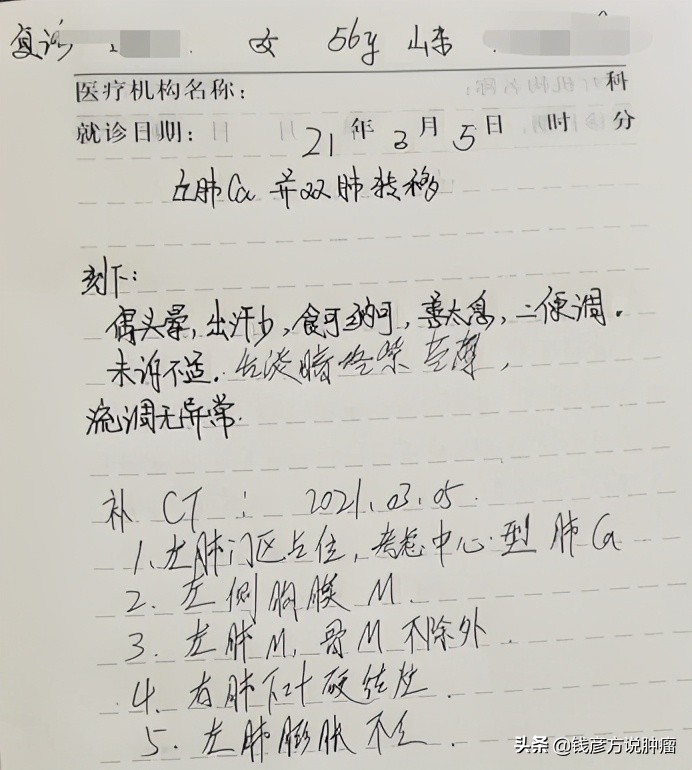 复诊 女 56y 山东
医疗机构名称: 科
就诊日期: 21 年 3 月 5 日 时 分
左肺Ca 并双肺转移
刻下:
偶头晕, 出汗少, 食可纳可, 善太息, 二便调.
未诉不适. 舌淡暗 苔薄,
流调无异常.
补 CT: 2021.03.05.
1. 左肺门区占位, 考虑中心型肺Ca
2. 左侧胸膜 M.
3. 左肺M, 骨M不除外.
4. 右肺下叶硬结灶.
5. 左肺膨胀不全.
头条 @钱彦方说肿瘤